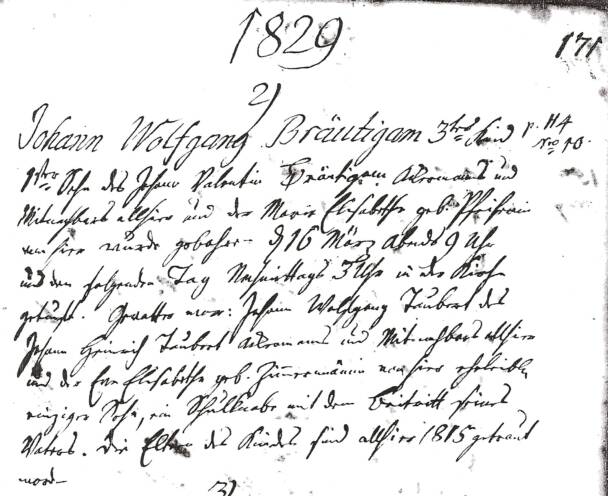 1829
171
2)
Johann Wolfgang Bräutigam 3tes Kind p. 114
No 10.
1ster Sohn des Johann Valentin Bräutigam Ackermanns und
Mitnachbars allhier und der Marie Elisabethe geb.
von hier wurde gebohren d 16 März abends 9 Uhr
und den folgenden Tag Nachmittags 3 Uhr in der Kirche
getauft. Gevatter war: Johann Wolfgang Taubert des
Johann Heinrich Taubert Ackermanns und Mitnachbars allhier
und der Eva Elisabethe geb. Zimmermännin von hier eheleibl.
einziger Sohn, ein Schulknabe mit dem Beitritt seines
Vaters. Die Eltern des Kindes sind allhier 1815 getraut
word
3)